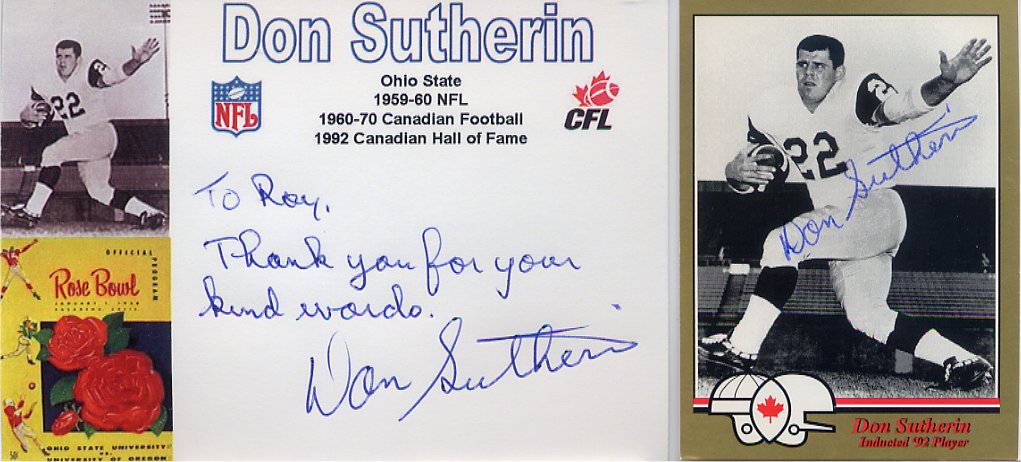 22
OFFICIAL
PROGRAM
Rose Bowl
JANUARY 1, 1958
PASADENA, CALIF.
50¢
OHIO STATE UNIVERSITY
VS.
UNIVERSITY OF OREGON
Don Sutherin
Ohio State
1959-60 NFL
1960-70 Canadian Football
1992 Canadian Hall of Fame
NFL
CFL
To Roy,
Thank you for your
kind words.
Don Sutherin
22
2
Don Sutherin
Don Sutherin
Inducted '92 Player